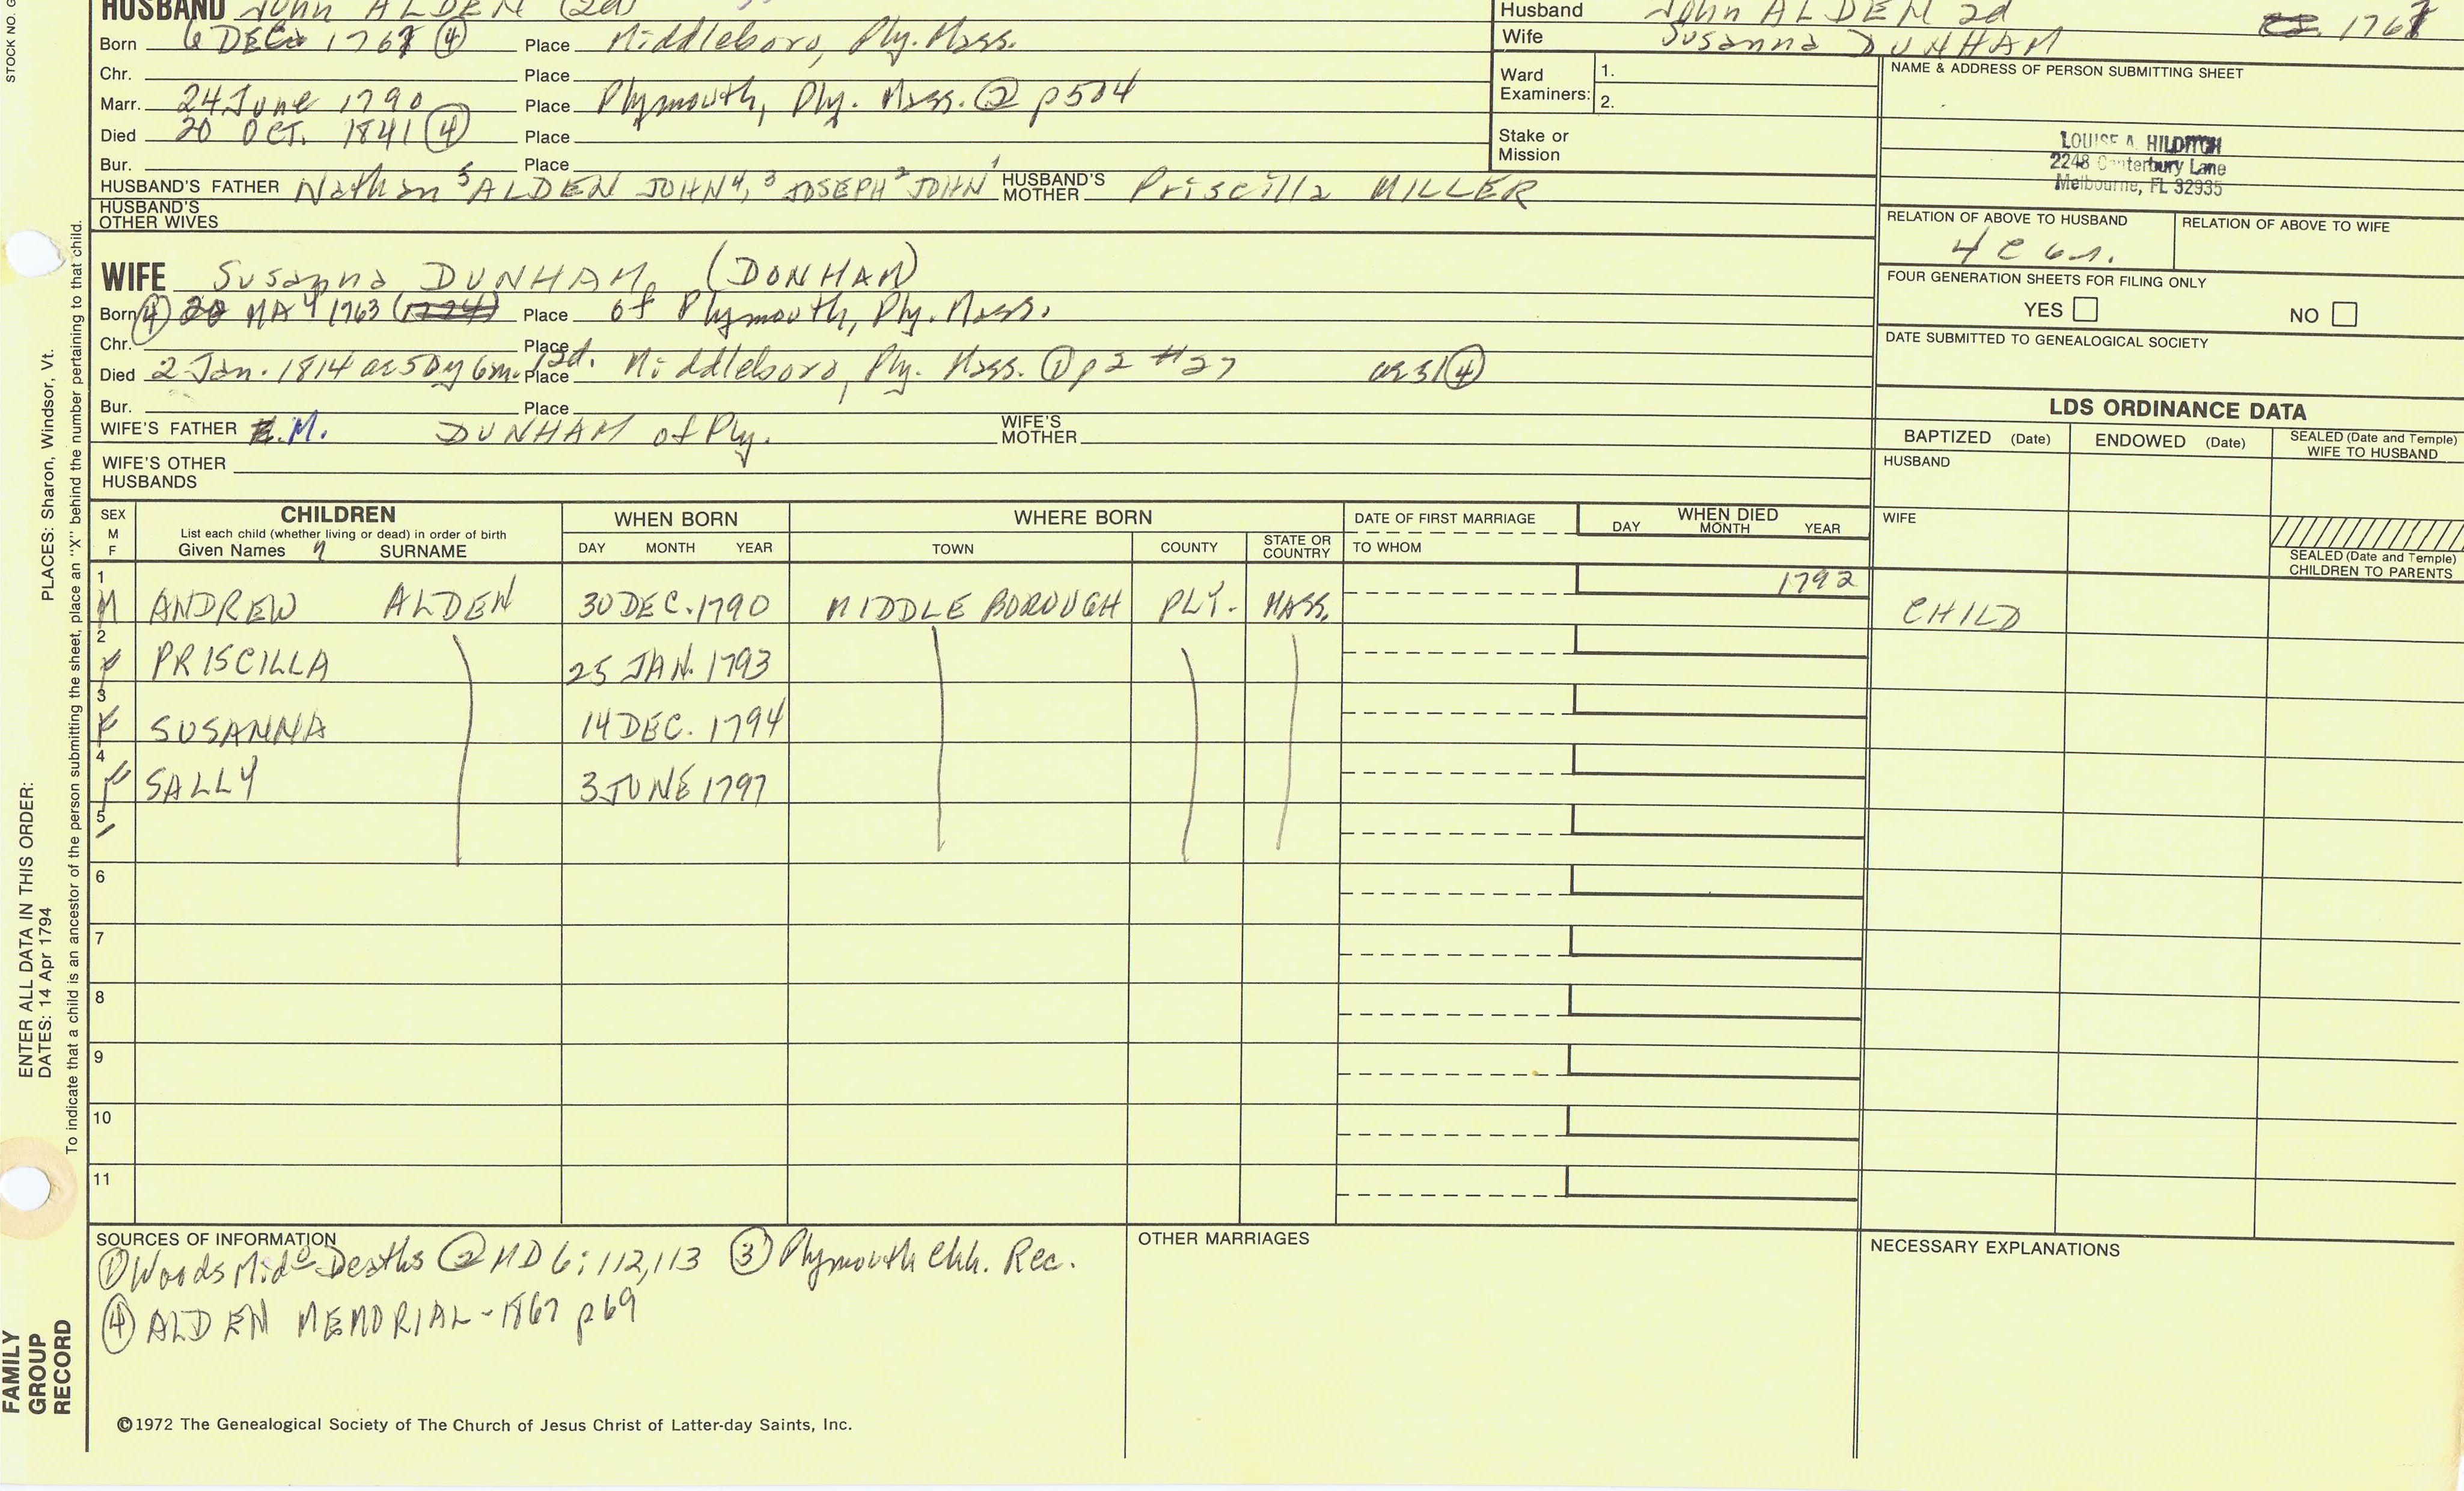 HUSBAND John ALDEN (2d)
Born 6 DEC 1767 ④ Place Middleboro, Ply. Mass.
Chr. Place
Marr. 24 June 1790 Place Plymouth, Ply. Mass. ② p504
Died 20 OCT. 1841 ④ Place
Bur. Place
HUSBAND'S FATHER Nathan⁵ ALDEN JOHN⁴,³ JOSEPH² JOHN¹ HUSBAND'S MOTHER Priscilla MILLER
HUSBAND'S OTHER WIVES
Husband John ALDEN 2d 1767
Wife Susanna DUNHAM
Ward Examiners: 1.
2.
Stake or Mission
NAME & ADDRESS OF PERSON SUBMITTING SHEET
LOUISE A. HILDITCH
2248 Canterbury Lane
Melbourne, FL 32935
RELATION OF ABOVE TO HUSBAND RELATION OF ABOVE TO WIFE
FOUR GENERATION SHEETS FOR FILING ONLY
YES NO
DATE SUBMITTED TO GENEALOGICAL SOCIETY
WIFE Susanna DUNHAM (DONHAM)
Born ④ 20 MAY 1763 Place of Plymouth, Ply. Mass.
Chr. Place
Died 2 Jan. 1814 ae 50y 6m. 12d. Place Middleboro, Ply. Mass. ① p2 #27 ae 51 ④
Bur. Place
WIFE'S FATHER M. DUNHAM of Ply. WIFE'S MOTHER
WIFE'S OTHER HUSBANDS
LDS ORDINANCE DATA
BAPTIZED (Date) ENDOWED (Date) SEALED (Date and Temple) WIFE TO HUSBAND
HUSBAND
WIFE
SEALED (Date and Temple) CHILDREN TO PARENTS
SEX M F
CHILDREN
List each child (whether living or dead) in order of birth
Given Names SURNAME
WHEN BORN
DAY MONTH YEAR
WHERE BORN
TOWN COUNTY STATE OR COUNTRY
DATE OF FIRST MARRIAGE
TO WHOM
WHEN DIED
DAY MONTH YEAR
1 M ANDREW ALDEN 30 DEC. 1790 MIDDLEBOROUGH PLY. MASS. 1792 CHILD
2 F PRISCILLA 25 JAN. 1793
3 F SUSANNA 14 DEC. 1794
4 F SALLY 3 JUNE 1797
5
6
7
8
9
10
11
SOURCES OF INFORMATION
① Woods Mid Deaths ② MD 6:112,113 ③ Plymouth Chh. Rec.
④ ALDEN MEMORIAL - 1867 p69
OTHER MARRIAGES
NECESSARY EXPLANATIONS
©1972 The Genealogical Society of The Church of Jesus Christ of Latter-day Saints, Inc.
STOCK NO. G
ENTER ALL DATA IN THIS ORDER:
DATES: 14 Apr 1794
PLACES: Sharon, Windsor, Vt.
To indicate that a child is an ancestor of the person submitting the sheet, place an "X" behind the number pertaining to that child.
FAMILY
GROUP
RECORD